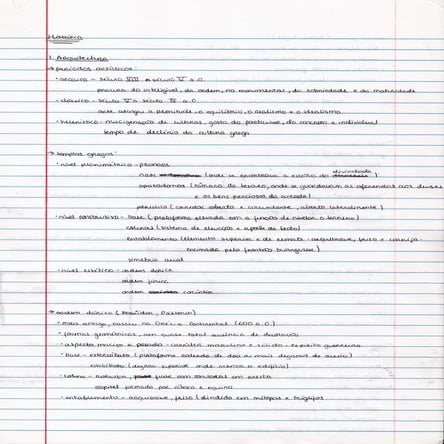 História
1. Arquitectura
→ períodos artísticos:
• arcaico – século VIII a século V a.C.
procura do inteligível, da ordem, no monumental, da sobriedade e da
• clássico – século V a século IV a.C.
arte atingiu a plenitude, o equilíbrio, o realismo e o idealismo
• helenístico – miscigenação de culturas, gosto do particular, do concreto e individual
tempo de declínio da cultura grega
→ templos gregos:
• nível planimétrico – pronaos
naos (onde se encontrava a estátua da divindade)
opistódomos (câmara do tesouro, onde se guardavam as oferendas aos deuses
e os bens preciosos da cidade)
peristilo (corredor coberto e circundante, aberto lateralmente)
• nível construtivo – base (plataforma elevada com a função de nivelar o terreno)
colunas (sistema de elevação e suporte do tecto)
entablamento (elemento superior e de remate – arquitrave, friso e cornija –
encimado pelo frontão triangular)
simetria axial
• nível estilístico – ordem dórica
ordem jónica
ordem coríntia
→ ordem dórica (
• mais antiga, nasceu na Grécia Continental (600 a.C.)
• formas geométricas, com quase total ausência de decoração
• aspecto maciço e pesado – carácter masculino e sólido – espírito guerreiro
• base – estereóbato (plataforma
estilóbato (degrau superior onde assenta o edifício)
• coluna – robusta, fuste com
capitel formado por ábaco e equino
• entablamento – arquitrave, friso (dividido em métopas e tríglifos